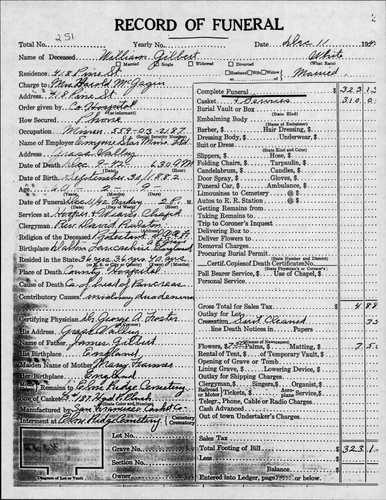 251
RECORD OF FUNERAL
Total No. Yearly No. Date Dec 11
Name of Deceased William Gilbert White
Married Single Widowed Divorced (What Race)
Residence: 418 Pine St Husband Wife Widow Married
Charge to Mrs Harold McGagin
Address 418 Pine St
Order given by Co Hospital
How Secured Phone
Occupation Miner 559-03-2187
Name of Employer Empire Star Mines Ltd
Address Grass Valley
Date of Death Dec 9
Date of Birth September 30 1882
Age
Date of Funeral Dec 11 Friday 2 P.M.
Services at Hooper & Weaver Chapel
Clergyman Rev David
Religion of the Deceased Protestant
Birthplace Lancashire England
Resided in the State 36 yrs 36 yrs 40 yrs
Place of Death County Hospital
Cause of Death Ca of head of Pancreas
Contributory Causes duodenum
Certifying Physician Dr. George A Foster
His Address Grass Valley
Name of Father James Gilbert
His Birthplace England
Maiden Name of Mother
Her Birthplace England
Remains to Elm Ridge Cemetery
Size of Casket
Manufactured by San Francisco Casket Co.
Interment at Elm Ridge Cemetery Cemetery Crematory
Lot No.
Grave No.
Section No.
Owner
Diagram of Lot or Vault
Complete Funeral $ 323 1
Casket & Services 310 0
Burial Vault or Box
(State Kind)
Embalming Body
(Name of Embalmer)
Barber, $ Hair Dressing, $
Dressing Body, $ Underwear, $
Suit or Dress
(State Kind and Color)
Slippers, $ Hose, $
Folding Chairs, $ Tarpaulin, $
Candelabrum, $ Candles, $
Door Spray, $ Gloves, $
Funeral Car, $ Ambulance, $
Limousines to Cemetery @ $
Autos to R. R. Station @ $
Getting Remains from
Taking Remains to
Trip to Coroner's Inquest
Delivering Box to
Deliver Flowers to
Removal Charges
Procuring Burial Permit
(State Number and District)
Certif. Copies of Death Certificate No.
(State Physician's or Coroner's)
Pall Bearer Service, $ Use of Chapel, $
Personal Services
Gross Total for Sales Tax $ 4 88
Outlay for Lot
Cremation Suit Cleaned 75
line Death Notices in Papers
(Names of Newspapers)
Flowers, $7.50 Palms, $ Matting, $ 7 50
Rental of Tent, $ of Temporary Vault, $
Opening of Grave or Tomb
Lining Grave, $ Lowering Device, $
Outlay for Shipping Charges
Clergyman, $ Singers, $ Organist, $
Railroad or Motor Tickets, $ Aeroplane Service, $
Telegr., Phone, Cable or Radio Charges
Cash Advanced
Out of town Undertaker's Charges
Sales Tax
Total Footing of Bill $ 323 1
Less
Balance $
Entered into Ledger, page or below